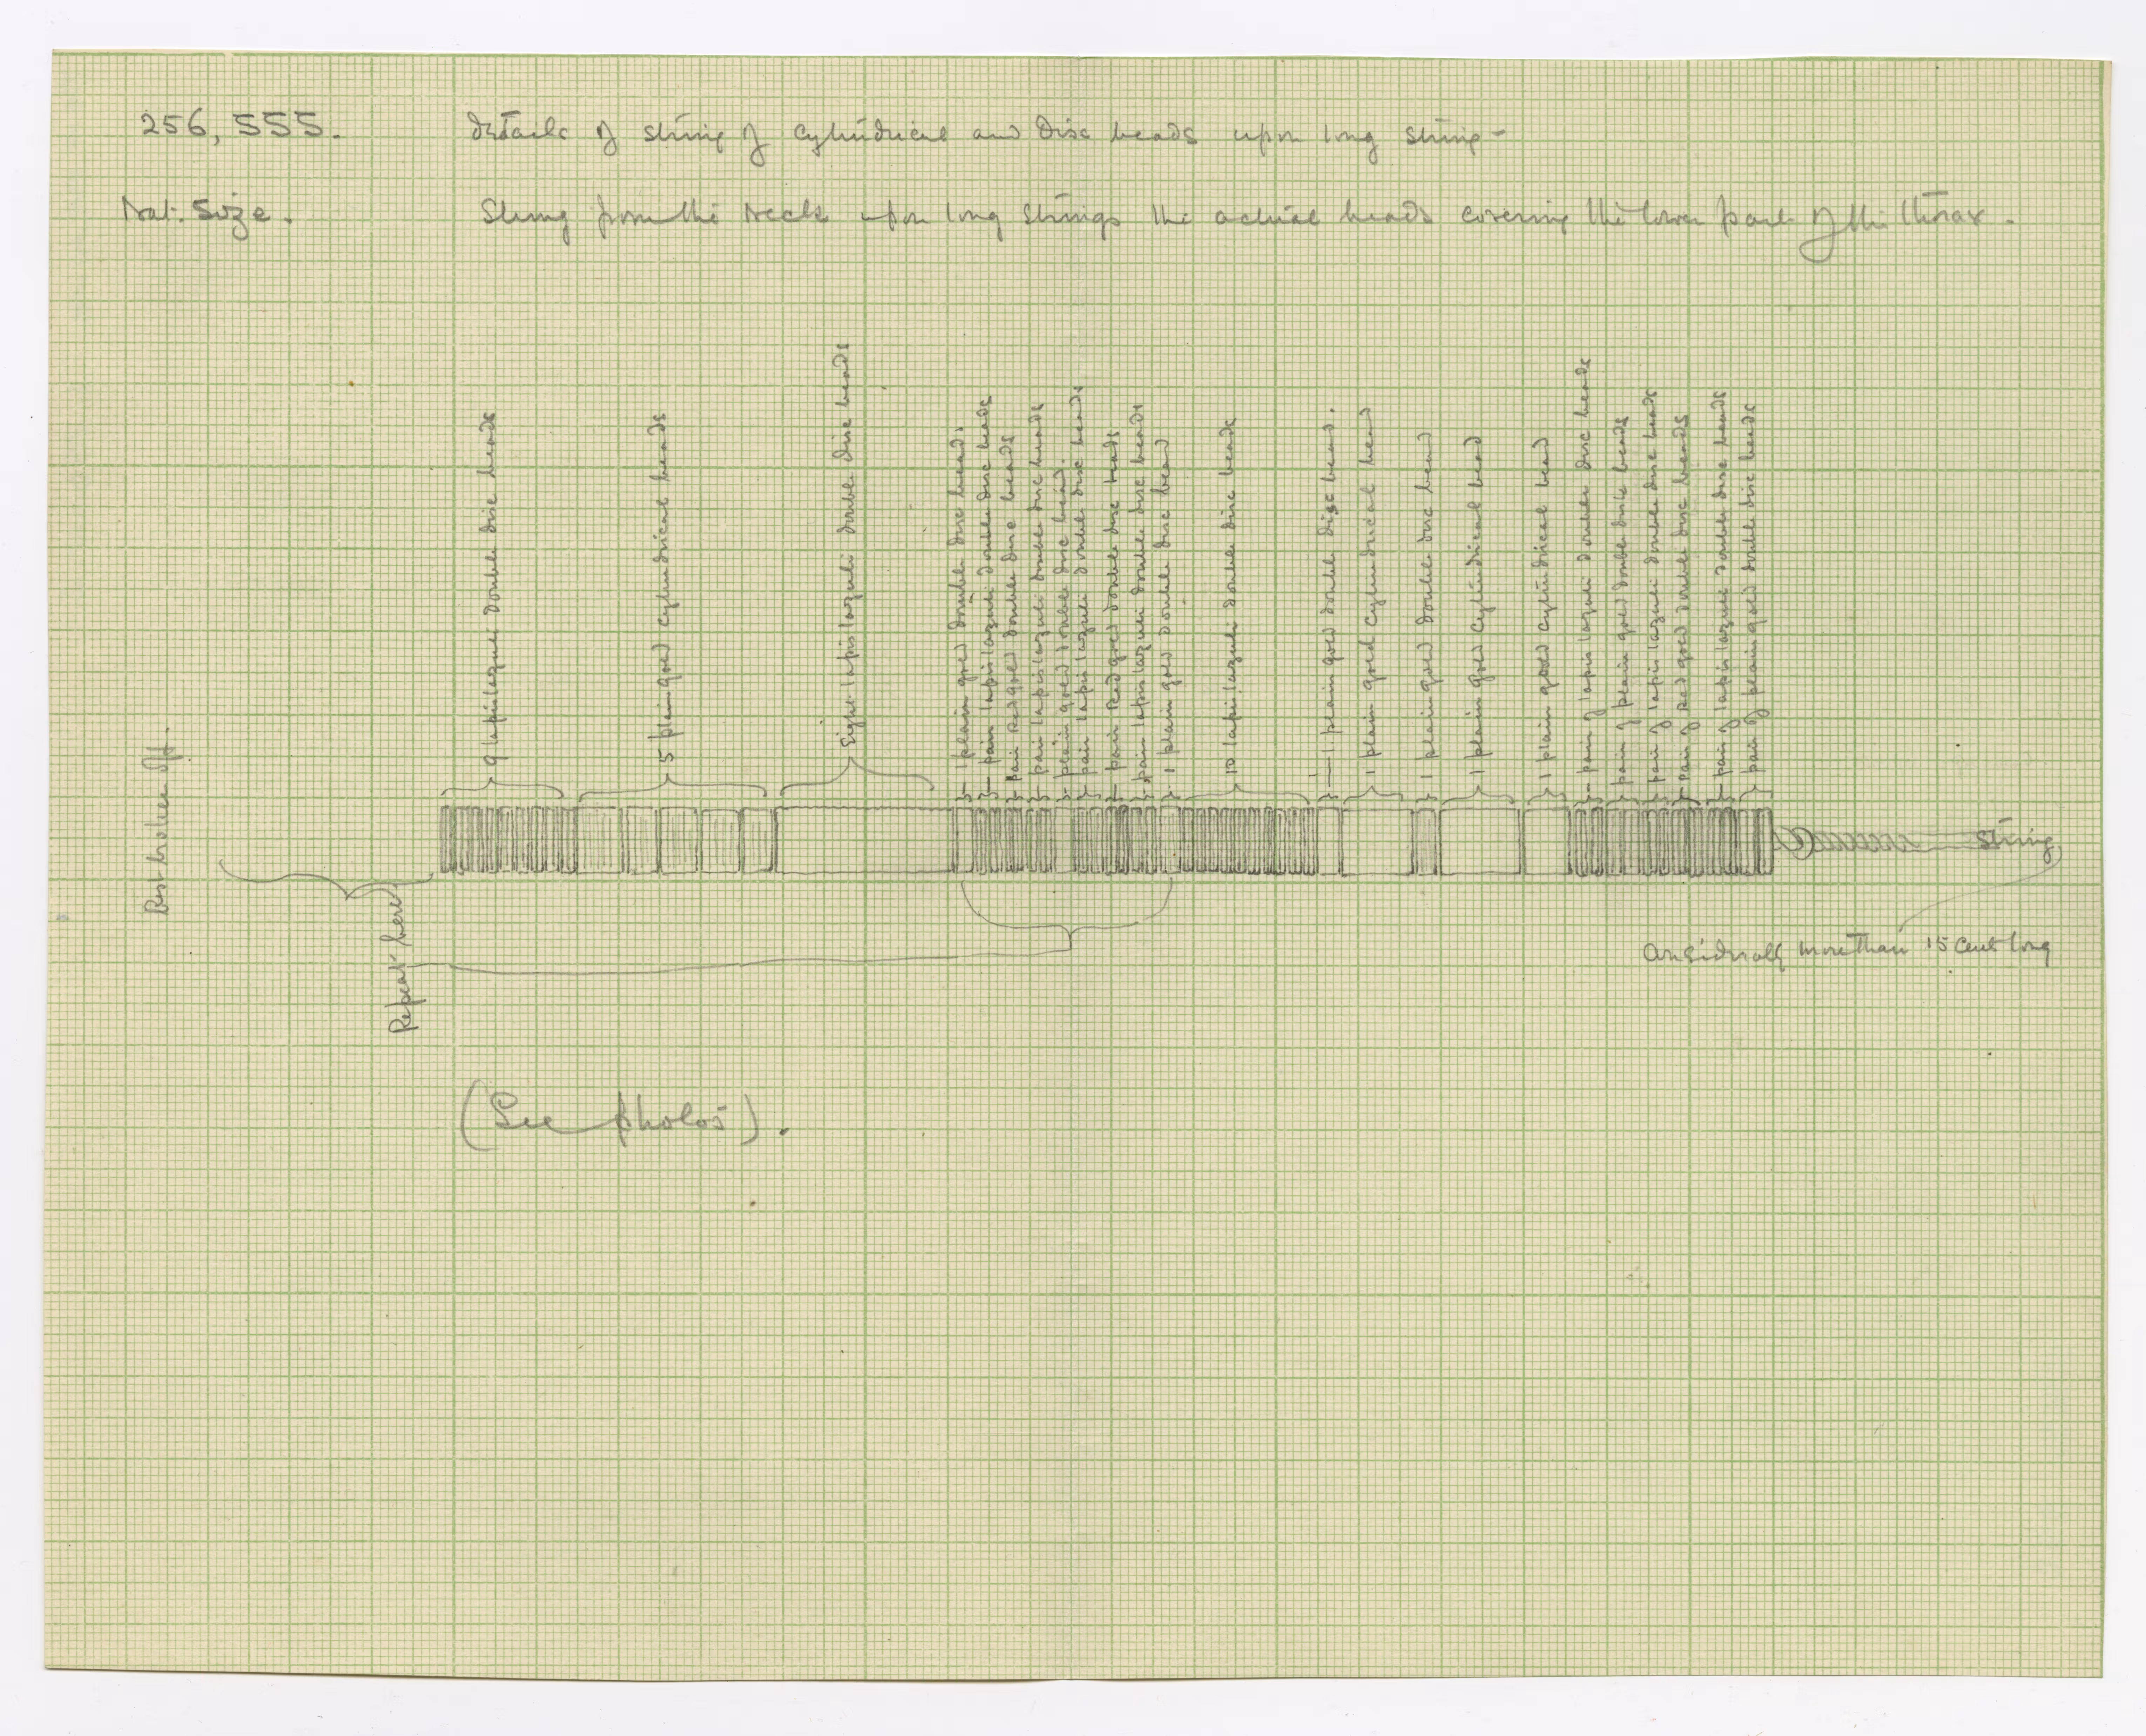 256, 555.
Details of string of cylindrical and disc beads upon long string-
Nat. Size.
Slung from the neck upon long strings the actual beads covering the lower part of the thorax.
Rest broken off.
Repeat here
9 lapis lazuli double disc beads
5 plain gold cylindrical beads
Eight lapis lazuli double disc beads
1 plain gold double disc bead.
pair lapis lazuli double disc beads
pair Red gold double disc beads
pair lapis lazuli double disc beads
plain gold double disc bead.
pair lapis lazuli double disc beads
pair Red gold double disc beads
pair lapis lazuli double disc beads
1 plain gold double disc bead
10 lapis lazuli double disc beads
1 plain gold double disc bead.
1 plain gold cylindrical bead
1 plain gold double disc bead
1 plain gold cylindrical bead
1 plain gold cylindrical bead
pair of lapis lazuli double disc beads
pair of plain gold double disk beads
pair of lapis lazuli double disc beads
pair of Red gold double disc beads
pair of lapis lazuli double disc beads
pair of plain gold double disc beads
string,
considerably more than 15 cent long
(See photos).